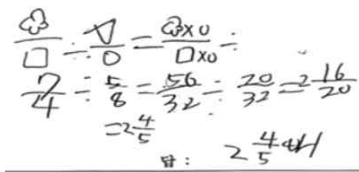 ♧/□ ÷ ▽/○ = ♧×○/□×○ ÷
7/4 ÷ 5/8 = 56/32 ÷ 20/32 = 2 16/20
= 2 4/5
답: 2 4/5